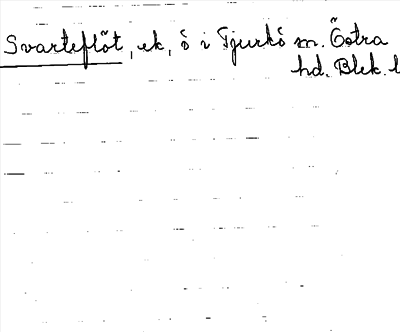 Svarteflöt, ek, ö i Tjurkö m. Östra
hd. Blek. l